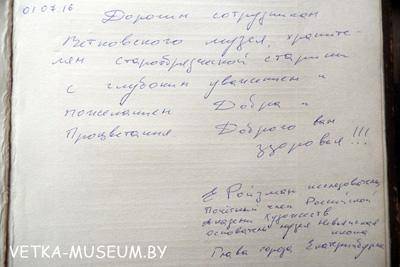 01.07.16
Дорогим сотрудникам
Ветковского музея, храните-
лям старообрядческой старины
с глубоким уважением и
пожеланием Добра и
Процветания Доброго вам
здоровья!!!
Е Ройзман исследователь,
Почётный член Российской
Академии Художеств
основатель музея Невьянская
икона
Глава города Екатеринбурга
VETKA-MUSEUM.BY